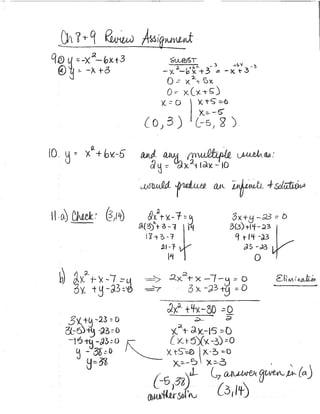 Ch 8+9 Review Assignment
9 ① y = -x² - 6x + 3
② y = -x + 3
SUBST
-x² - 6x + 3 = -x + 3
0 = x² + 5x
0 = x(x+5)
x = 0 | x+5=0
x = -5
(0, 3) (-5, 8)
10. y = x² + 6x - 5 and any multiple such as:
2y = 2x² + 12x - 10
would produce an infinite # solutions
11. a) Check: (3,14) 2x² + x - 7 = y 3x + y - 23 = 0
2(3)² + 3 - 7 | 14 3(3) + 14 - 23
18 + 3 - 7 9 + 14 - 23
21 - 7 ✓ 23 - 23 ✓
14 0
b) 2x² + x - 7 = y ⇒ 2x² + x - 7 - y = 0 Elimination
3x + y - 23 = 0 ⇒ 3x - 23 + y = 0
2x² + 4x - 30 = 0
2 2
3x + y - 23 = 0 x² + 2x - 15 = 0
3(-5) + y - 23 = 0 (x+5)(x-3) = 0
-15 + y - 23 = 0 x+5=0 | x-3=0
y - 38 = 0 x = -5 | x = 3
y = 38 ↳ answer given in (a)
(-5, 38) (3,14)
another sol'n